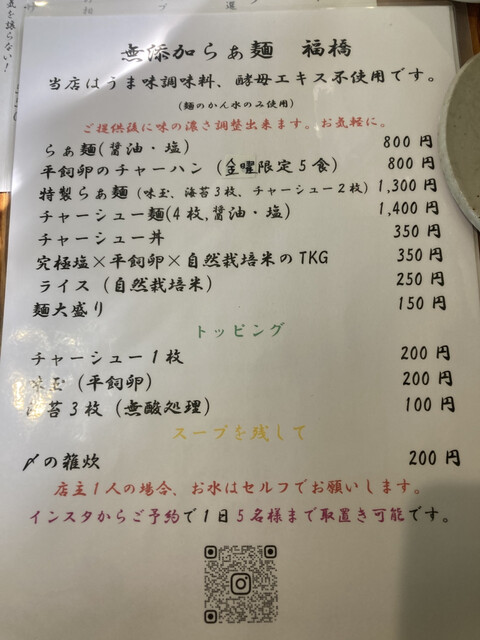 気を譲らない！
無添加らぁ麺　福橋
当店はうま味調味料、酵母エキス不使用です。
(麺のかん水のみ使用)
ご提供後に味の濃さ調整出来ます。お気軽に。
らぁ麺(醤油・塩) 800円
平飼卵のチャーハン (金曜限定5食) 800円
特製らぁ麺 (味玉、海苔3枚、チャーシュー2枚) 1,300円
チャーシュー麺(4枚,醤油・塩) 1,400円
チャーシュー丼 350円
究極塩×平飼卵×自然栽培米のTKG 350円
ライス (自然栽培米) 250円
麺大盛り 150円
トッピング
チャーシュー1枚 200円
味玉 (平飼卵) 200円
海苔3枚 (無酸処理) 100円
スープを残して
〆の雑炊 200円
店主1人の場合、お水はセルフでお願いします。
インスタからご予約で1日5名様まで取置き可能です。